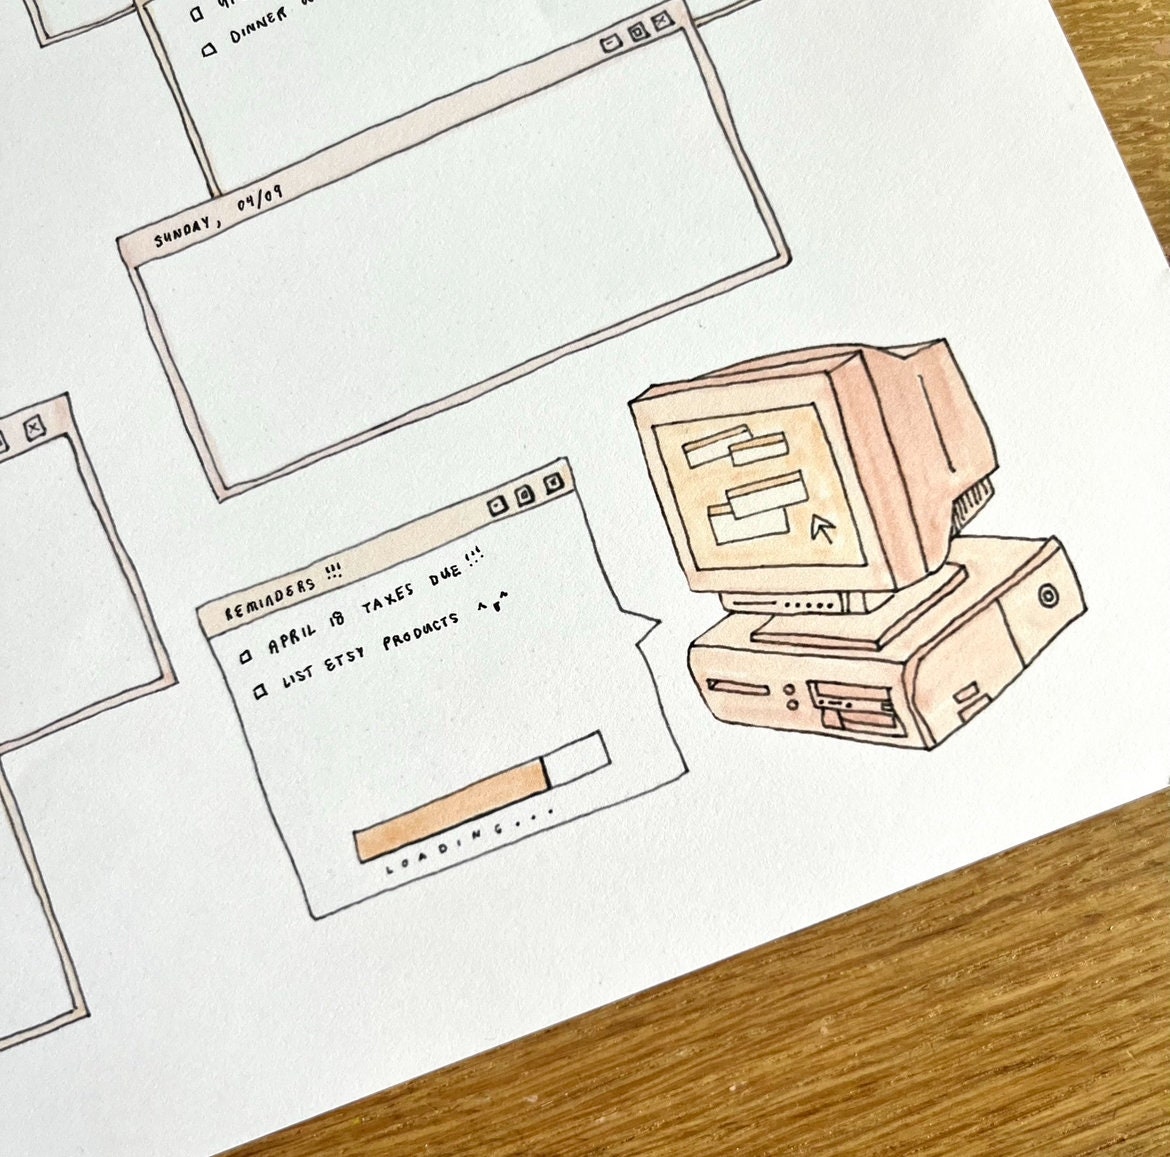 DINNER
SUNDAY, 04/09
REMINDERS !!!
APRIL 18 TAXES DUE!!!
LIST ETSY PRODUCTS ^.^
LOADING...